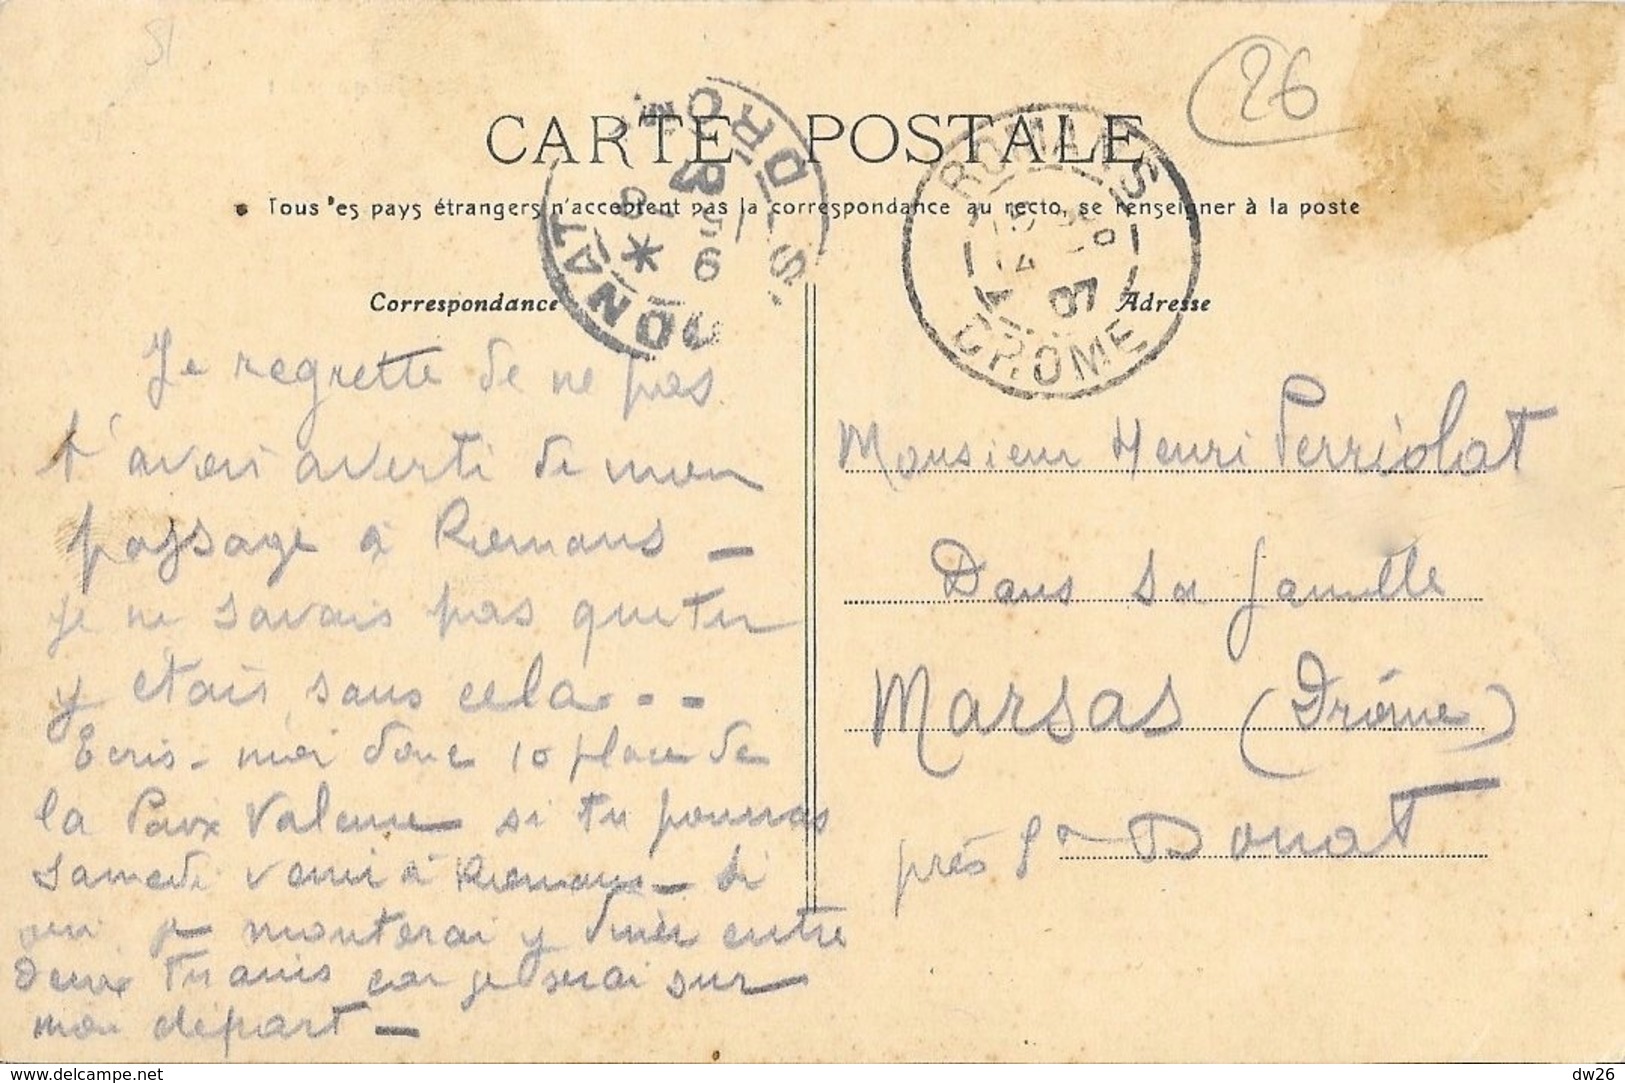 51
26
CARTE POSTALE
Tous les pays étrangers n'acceptent pas la correspondance au recto, se renseigner à la poste
ST DONAT DROME
ROMANS DROME
07
Correspondance
Adresse
Je regrette de ne pas
t'avoir averti de mon
passage à Romans —
je ne savais pas que tu
y étais, sans cela...
Ecris-moi donc 10 place de
la Paix Valence si tu pourras
samedi venir à Romans — Si
oui je monterai y diner entre
deux trains car je serai sur
mon départ —
Monsieur Henri Perriolat
Dans sa famille
Marsas (Drôme)
près St Donat
dw26